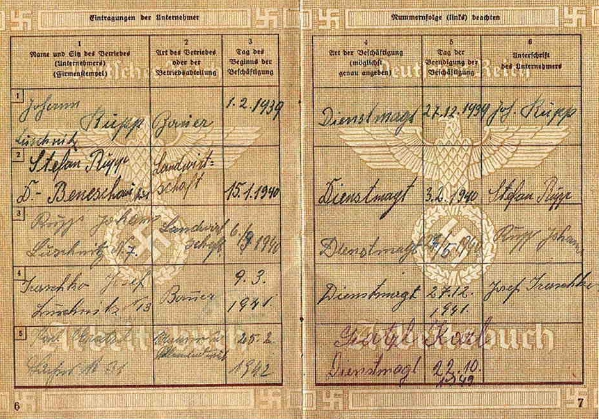 Eintragungen der Unternehmer
1
Name und Sitz des Betriebes
(Unternehmers)
(Firmenstempel)
2
Art des Betriebes
oder der
Betriebsabteilung
3
Tag des
Beginns der
Beschäftigung
1
Johann
Rupp
Luschnitz
Bauer
1.2.1939
2
Stefan Rupp
D- Beneschau
Landwirt-
schaft
15.1.1940
3
Rupp Johann
Luschnitz
Landwirt
schaft
1940
4
Josef
Luschnitz 13
Bauer
9.3.
1941
5
25.2.
1942
6
Nummernfolge (links) beachten
4
Art der Beschäftigung
(möglichst
genau angeben)
5
Tag der
Beendigung der
Beschäftigung
6
Unterschrift
des Unternehmers
Dienstmagt
27.12.1939
Joh. Rupp
Dienstmagt
3.2.1940
Stefan Rupp
Dienstmagt
1940
Rupp Johann
Dienstmagt
27.12.
1941
Josef
Karl
Dienstmagt
22.10.
7
Deutsches Reich
Arbeitsbuch